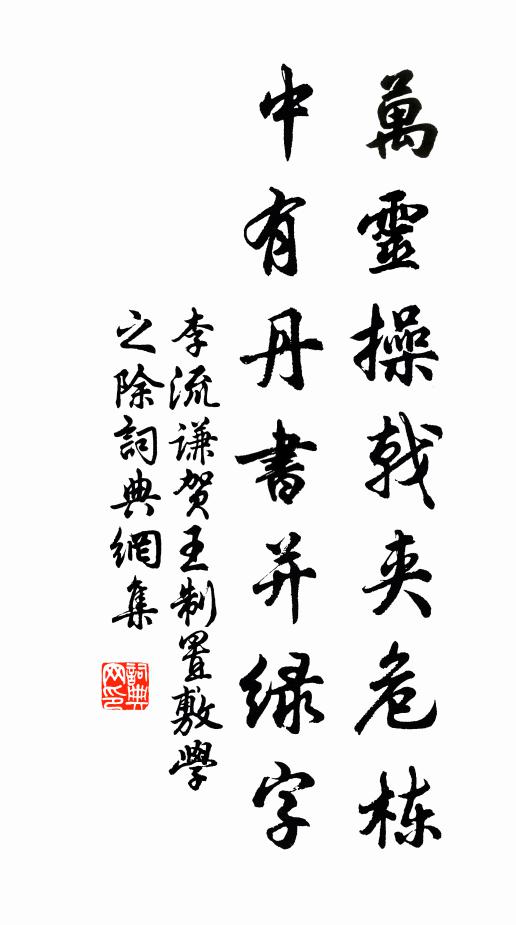 萬靈操戟夾危栋
中有丹書并緑字
李流谦贺王制置敷學
之除詞典網集
詞典网印